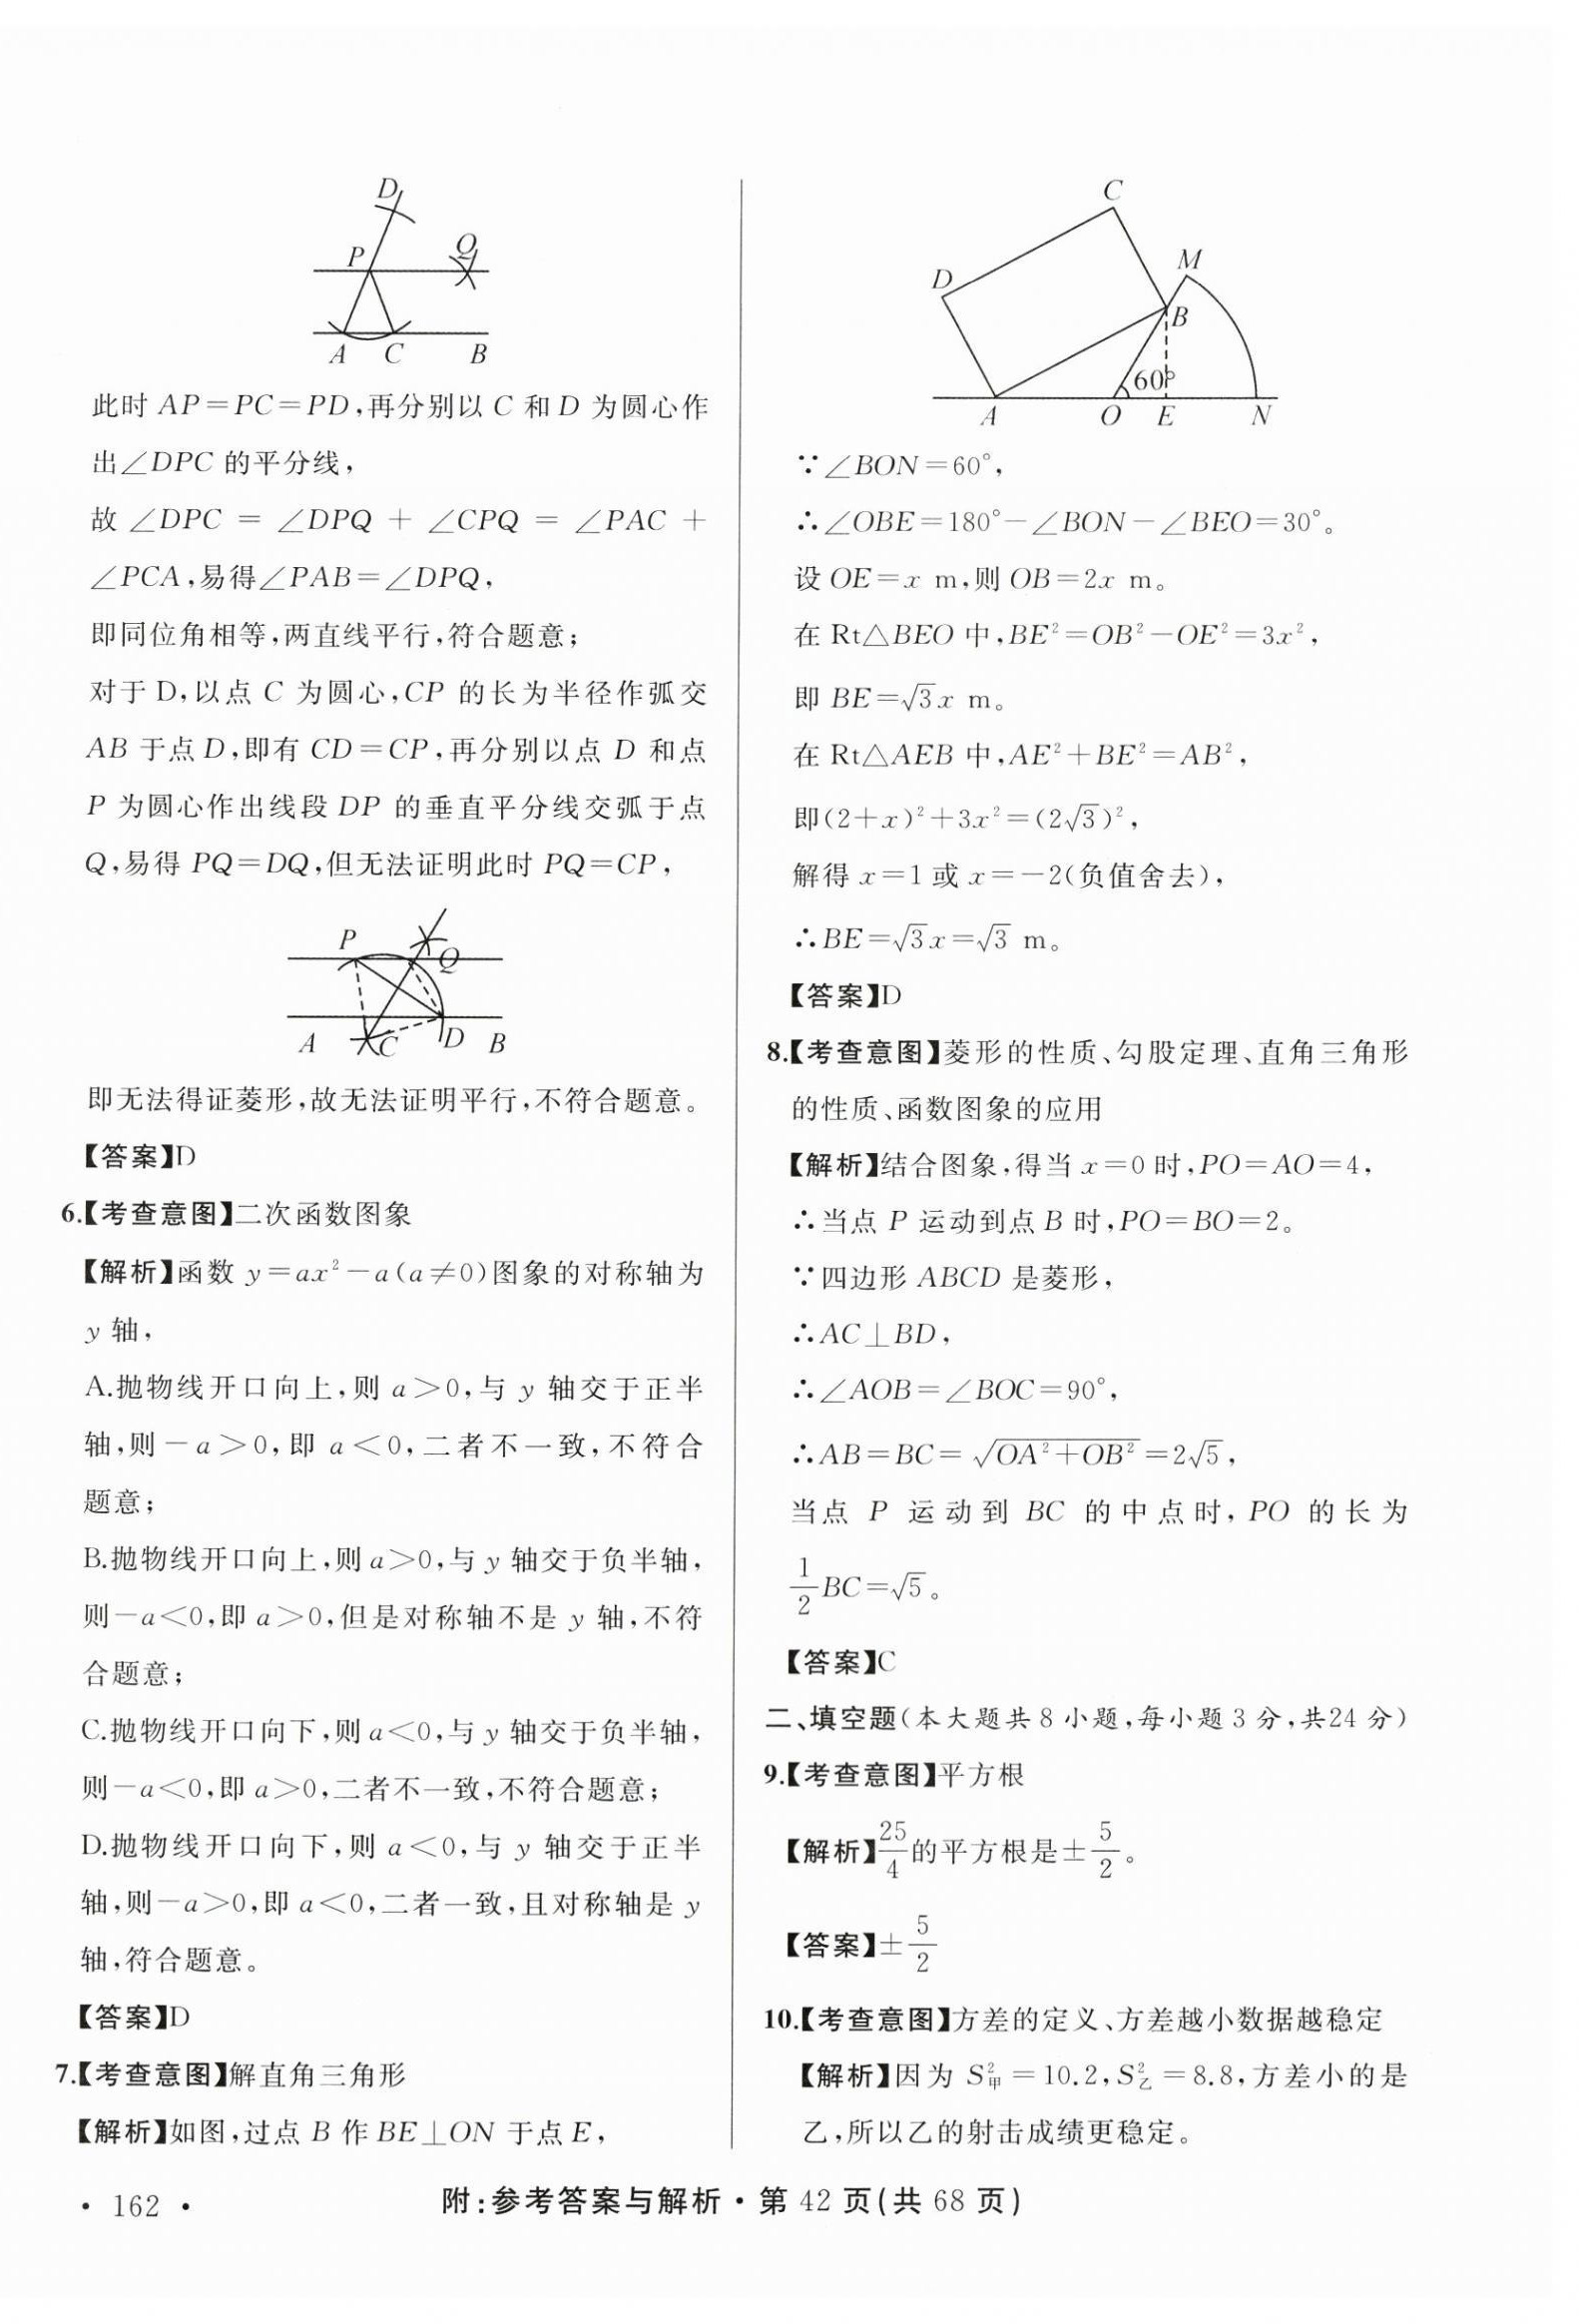 D
P
Q
A C B
此时 AP=PC=PD,再分别以 C 和 D 为圆心作
出∠DPC 的平分线,
故 ∠DPC = ∠DPQ + ∠CPQ = ∠PAC +
∠PCA,易得∠PAB=∠DPQ,
即同位角相等,两直线平行,符合题意;
对于 D,以点 C 为圆心,CP 的长为半径作弧交
AB 于点 D,即有 CD=CP,再分别以点 D 和点
P 为圆心作出线段 DP 的垂直平分线交弧于点
Q,易得 PQ=DQ,但无法证明此时 PQ=CP,
P
Q
A C D B
即无法得证菱形,故无法证明平行,不符合题意。
【答案】D
6.【考查意图】二次函数图象
【解析】函数 y=ax²-a(a≠0)图象的对称轴为
y 轴,
A.抛物线开口向上,则 a>0,与 y 轴交于正半
轴,则-a>0,即 a<0,二者不一致,不符合
题意;
B.抛物线开口向上,则 a>0,与 y 轴交于负半轴,
则-a<0,即 a>0,但是对称轴不是 y 轴,不符
合题意;
C.抛物线开口向下,则 a<0,与 y 轴交于负半轴,
则-a<0,即 a>0,二者不一致,不符合题意;
D.抛物线开口向下,则 a<0,与 y 轴交于正半
轴,则-a>0,即 a<0,二者一致,且对称轴是 y
轴,符合题意。
【答案】D
7.【考查意图】解直角三角形
【解析】如图,过点 B 作 BE⊥ON 于点 E,
C
M
D
B
60°
A O E N
∵∠BON=60°,
∴∠OBE=180°-∠BON-∠BEO=30°。
设 OE=x m,则 OB=2x m。
在 Rt△BEO 中,BE²=OB²-OE²=3x²,
即 BE=√3x m。
在 Rt△AEB 中,AE²+BE²=AB²,
即(2+x)²+3x²=(2√3)²,
解得 x=1 或 x=-2(负值舍去),
∴BE=√3x=√3 m。
【答案】D
8.【考查意图】菱形的性质、勾股定理、直角三角形
的性质、函数图象的应用
【解析】结合图象,得当 x=0 时,PO=AO=4,
∴当点 P 运动到点 B 时,PO=BO=2。
∵四边形 ABCD 是菱形,
∴AC⊥BD,
∴∠AOB=∠BOC=90°,
∴AB=BC=√(OA²+OB²)=2√5,
当点 P 运动到 BC 的中点时,PO 的长为
1/2 BC=√5。
【答案】C
二、填空题(本大题共 8 小题,每小题 3 分,共24 分)
9.【考查意图】平方根
【解析】25/4 的平方根是±5/2。
【答案】±5/2
10.【考查意图】方差的定义、方差越小数据越稳定
【解析】因为 S²甲=10.2,S²乙=8.8,方差小的是
乙,所以乙的射击成绩更稳定。
· 162 ·
附:参考答案与解析·第 42 页(共 68 页)